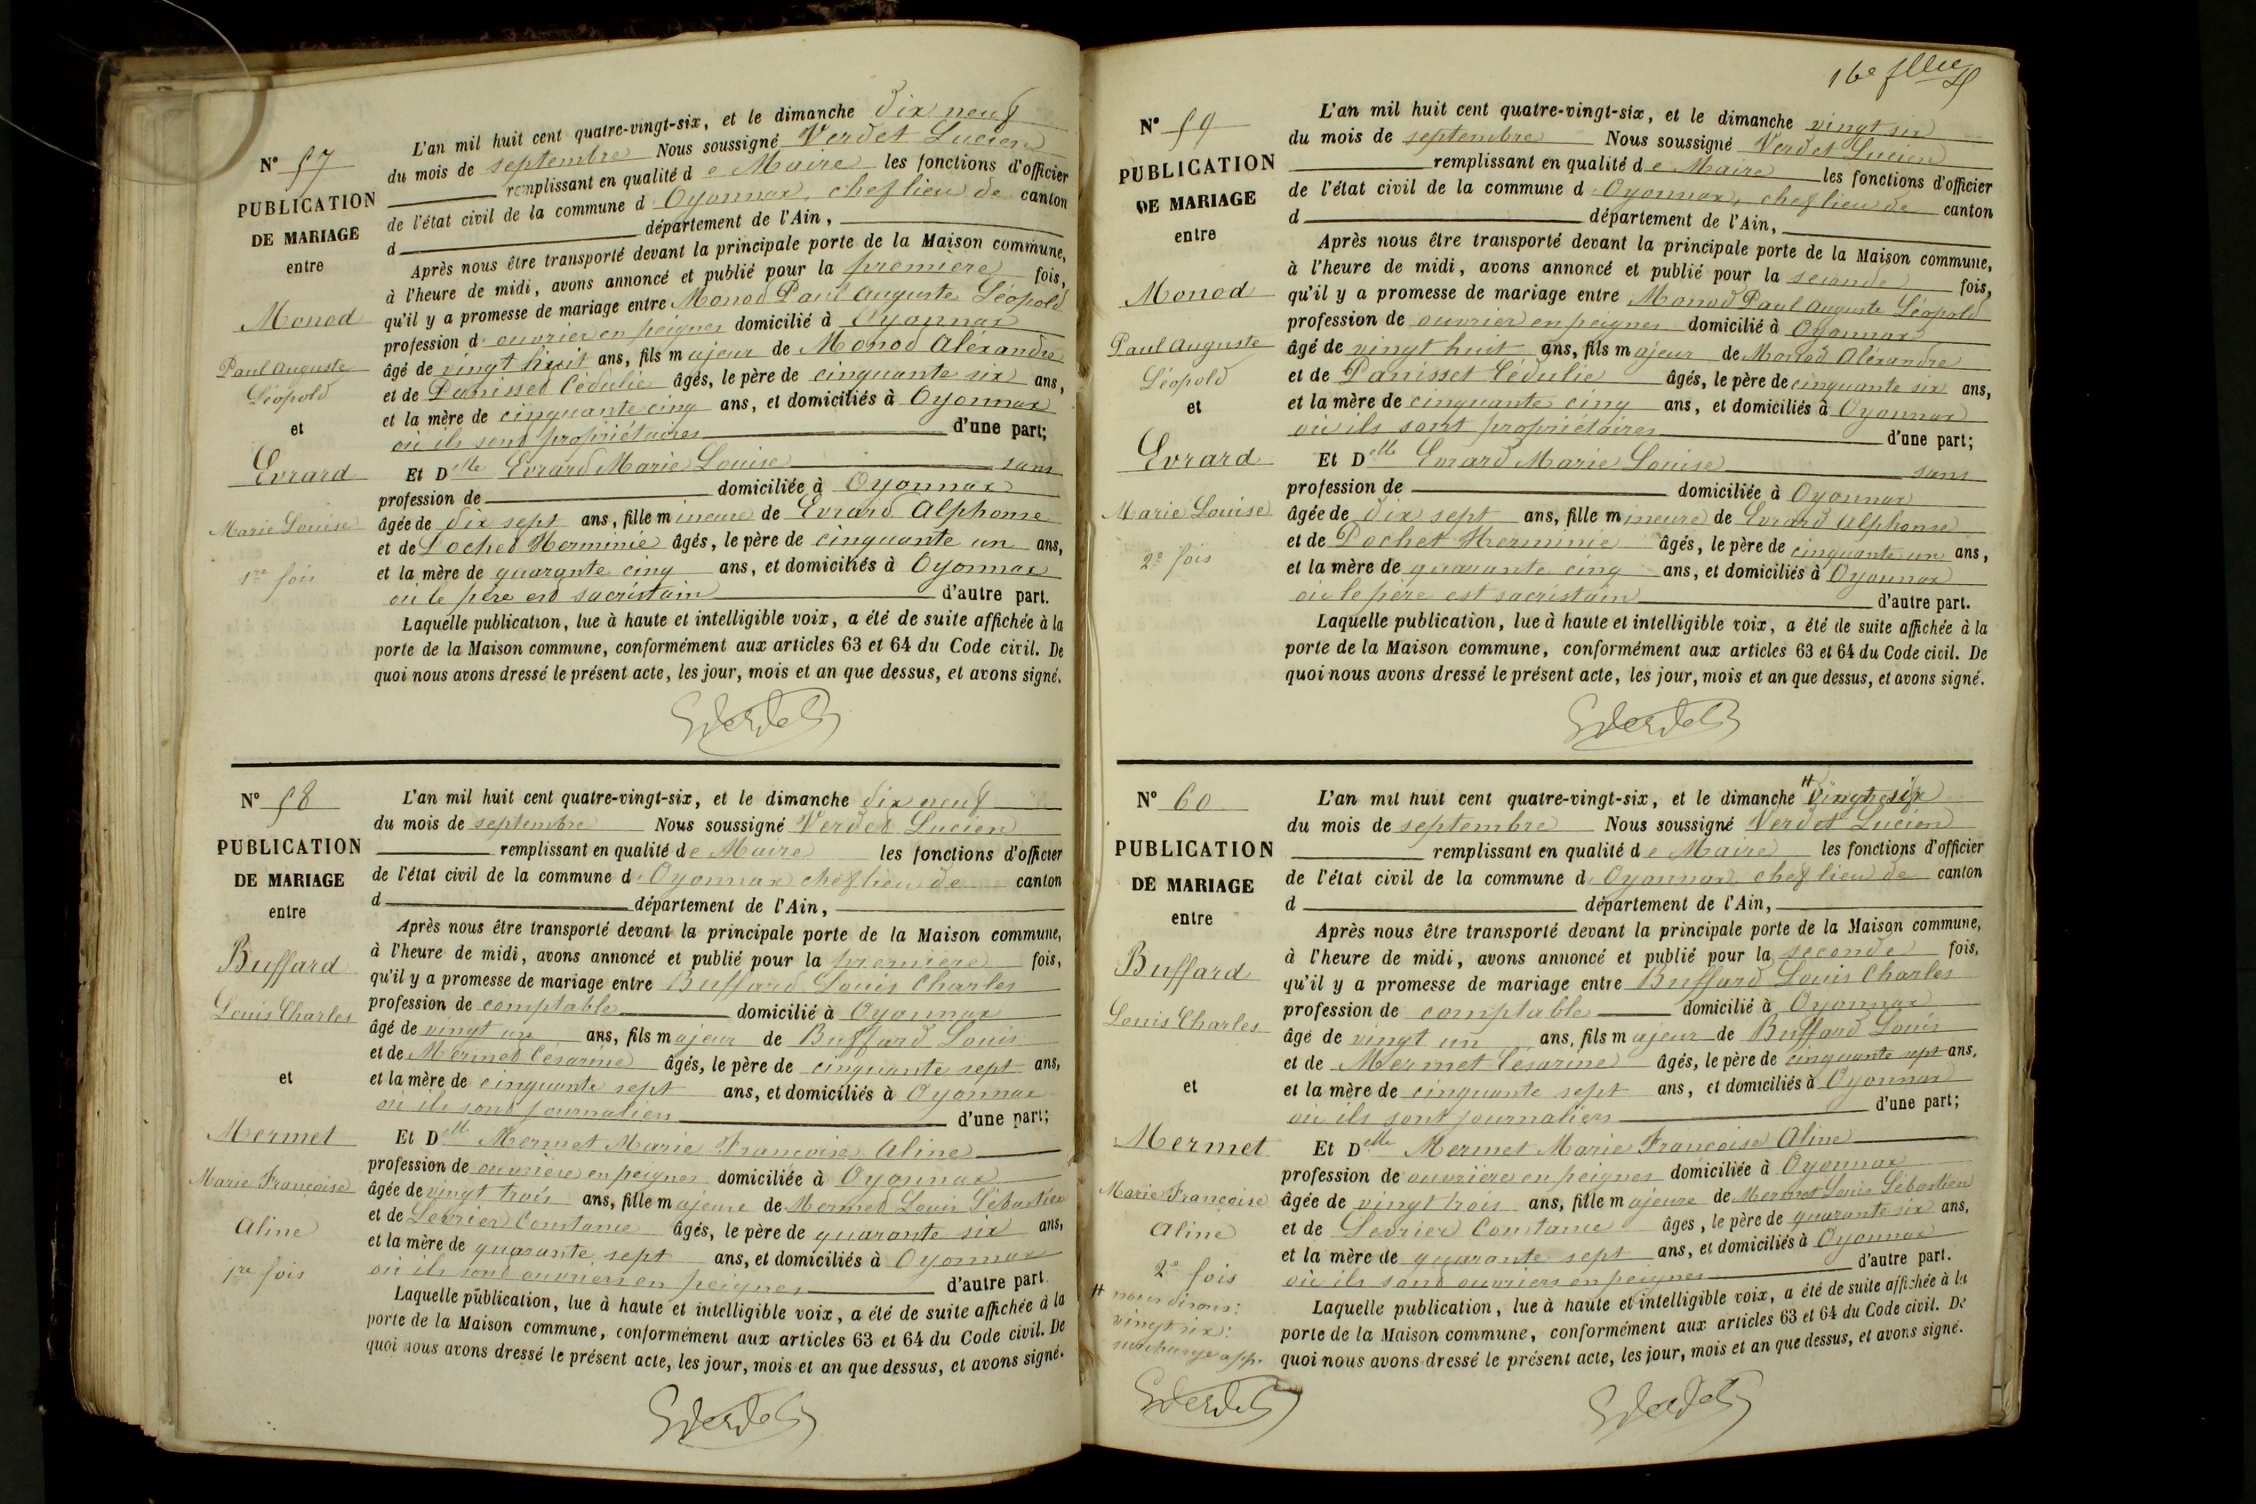 N° 57
PUBLICATION
DE MARIAGE
entre
Monod
Paul Auguste
Léopold
et
Evrard
Marie Louise
1re fois
L'an mil huit cent quatre-vingt-six, et le dimanche dix neuf
du mois de septembre Nous soussigné Verdet Lucien
remplissant en qualité de Maire les fonctions d'officier
de l'état civil de la commune d Oyonnax, chef lieu de canton
d département de l'Ain,
Après nous être transporté devant la principale porte de la Maison commune,
à l'heure de midi, avons annoncé et publié pour la première fois,
qu'il y a promesse de mariage entre Monod Paul Auguste Léopold
profession d ouvrier en peignes domicilié à Oyonnax
âgé de vingt huit ans, fils majeur de Monod Alexandre
et de Panisset Cédulie âgés, le père de cinquante six ans,
et la mère de cinquante cinq ans, et domiciliés à Oyonnax
où ils sont propriétaires d'une part;
Et Delle Evrard Marie Louise sans
profession de domiciliée à Oyonnax
âgée de dix sept ans, fille mineure de Evrard Alphonse
et de Pochet Herminie âgés, le père de cinquante un ans,
et la mère de quarante cinq ans, et domiciliés à Oyonnax
où le père est sacristain d'autre part.
Laquelle publication, lue à haute et intelligible voix, a été de suite affichée à la
porte de la Maison commune, conformément aux articles 63 et 64 du Code civil. De
quoi nous avons dressé le présent acte, les jour, mois et an que dessus, et avons signé.
Verdet
N° 58
PUBLICATION
DE MARIAGE
entre
Buffard
Louis Charles
et
Mermet
Marie Françoise
Aline
1re fois
L'an mil huit cent quatre-vingt-six, et le dimanche dix neuf
du mois de septembre Nous soussigné Verdet Lucien
remplissant en qualité de Maire les fonctions d'officier
de l'état civil de la commune d Oyonnax chef lieu de canton
d département de l'Ain,
Après nous être transporté devant la principale porte de la Maison commune,
à l'heure de midi, avons annoncé et publié pour la première fois,
qu'il y a promesse de mariage entre Buffard Louis Charles
profession de comptable domicilié à Oyonnax
âgé de vingt un ans, fils majeur de Buffard Louis
et de Mermet Césarine âgés, le père de cinquante sept ans,
et la mère de cinquante sept ans, et domiciliés à Oyonnax
où ils sont journaliers d'une part;
Et Delle Mermet Marie Françoise Aline
profession de ouvrière en peignes domiciliée à Oyonnax
âgée de vingt trois ans, fille majeure de Mermet Louis Sébastien
et de Levrier Constance âgés, le père de quarante six ans,
et la mère de quarante sept ans, et domiciliés à Oyonnax
où ils sont ouvriers en peignes d'autre part.
Laquelle publication, lue à haute et intelligible voix, a été de suite affichée à la
porte de la Maison commune, conformément aux articles 63 et 64 du Code civil. De
quoi nous avons dressé le présent acte, les jour, mois et an que dessus, et avons signé.
Verdet
16e
N° 59
PUBLICATION
DE MARIAGE
entre
Monod
Paul Auguste
Léopold
et
Evrard
Marie Louise
2e fois
L'an mil huit cent quatre-vingt-six, et le dimanche vingt six
du mois de septembre Nous soussigné Verdet Lucien
remplissant en qualité de Maire les fonctions d'officier
de l'état civil de la commune d Oyonnax, chef lieu de canton
d département de l'Ain,
Après nous être transporté devant la principale porte de la Maison commune,
à l'heure de midi, avons annoncé et publié pour la seconde fois,
qu'il y a promesse de mariage entre Monod Paul Auguste Léopold
profession de ouvrier en peignes domicilié à Oyonnax
âgé de vingt huit ans, fils majeur de Monod Alexandre
et de Panisset Cédulie âgés, le père de cinquante six ans,
et la mère de cinquante cinq ans, et domiciliés à Oyonnax
où ils sont propriétaires d'une part;
Et Delle Evrard Marie Louise sans
profession de domiciliée à Oyonnax
âgée de dix sept ans, fille mineure de Evrard Alphonse
et de Pochet Herminie âgés, le père de cinquante un ans,
et la mère de quarante cinq ans, et domiciliés à Oyonnax
où le père est sacristain d'autre part.
Laquelle publication, lue à haute et intelligible voix, a été de suite affichée à la
porte de la Maison commune, conformément aux articles 63 et 64 du Code civil. De
quoi nous avons dressé le présent acte, les jour, mois et an que dessus, et avons signé.
Verdet
N° 60
PUBLICATION
DE MARIAGE
entre
Buffard
Louis Charles
et
Mermet
Marie Françoise
Aline
2e fois
# nous disons:
vingt six:
surcharge app.
Verdet
L'an mil huit cent quatre-vingt-six, et le dimanche # vingt six
du mois de septembre Nous soussigné Verdet Lucien
remplissant en qualité de Maire les fonctions d'officier
de l'état civil de la commune d Oyonnax, chef lieu de canton
d département de l'Ain,
Après nous être transporté devant la principale porte de la Maison commune,
à l'heure de midi, avons annoncé et publié pour la seconde fois,
qu'il y a promesse de mariage entre Buffard Louis Charles
profession de comptable domicilié à Oyonnax
âgé de vingt un ans, fils majeur de Buffard Louis
et de Mermet Césarine âgés, le père de cinquante sept ans,
et la mère de cinquante sept ans, et domiciliés à Oyonnax
où ils sont journaliers d'une part;
Et Delle Mermet Marie Françoise Aline
profession de ouvrière en peignes domiciliée à Oyonnax
âgée de vingt trois ans, fille majeure de Mermet Louis Sébastien
et de Levrier Constance âgés, le père de quarante six ans,
et la mère de quarante sept ans, et domiciliés à Oyonnax
où ils sont ouvriers en peignes d'autre part.
Laquelle publication, lue à haute et intelligible voix, a été de suite affichée à la
porte de la Maison commune, conformément aux articles 63 et 64 du Code civil. De
quoi nous avons dressé le présent acte, les jour, mois et an que dessus, et avons signé.
Verdet